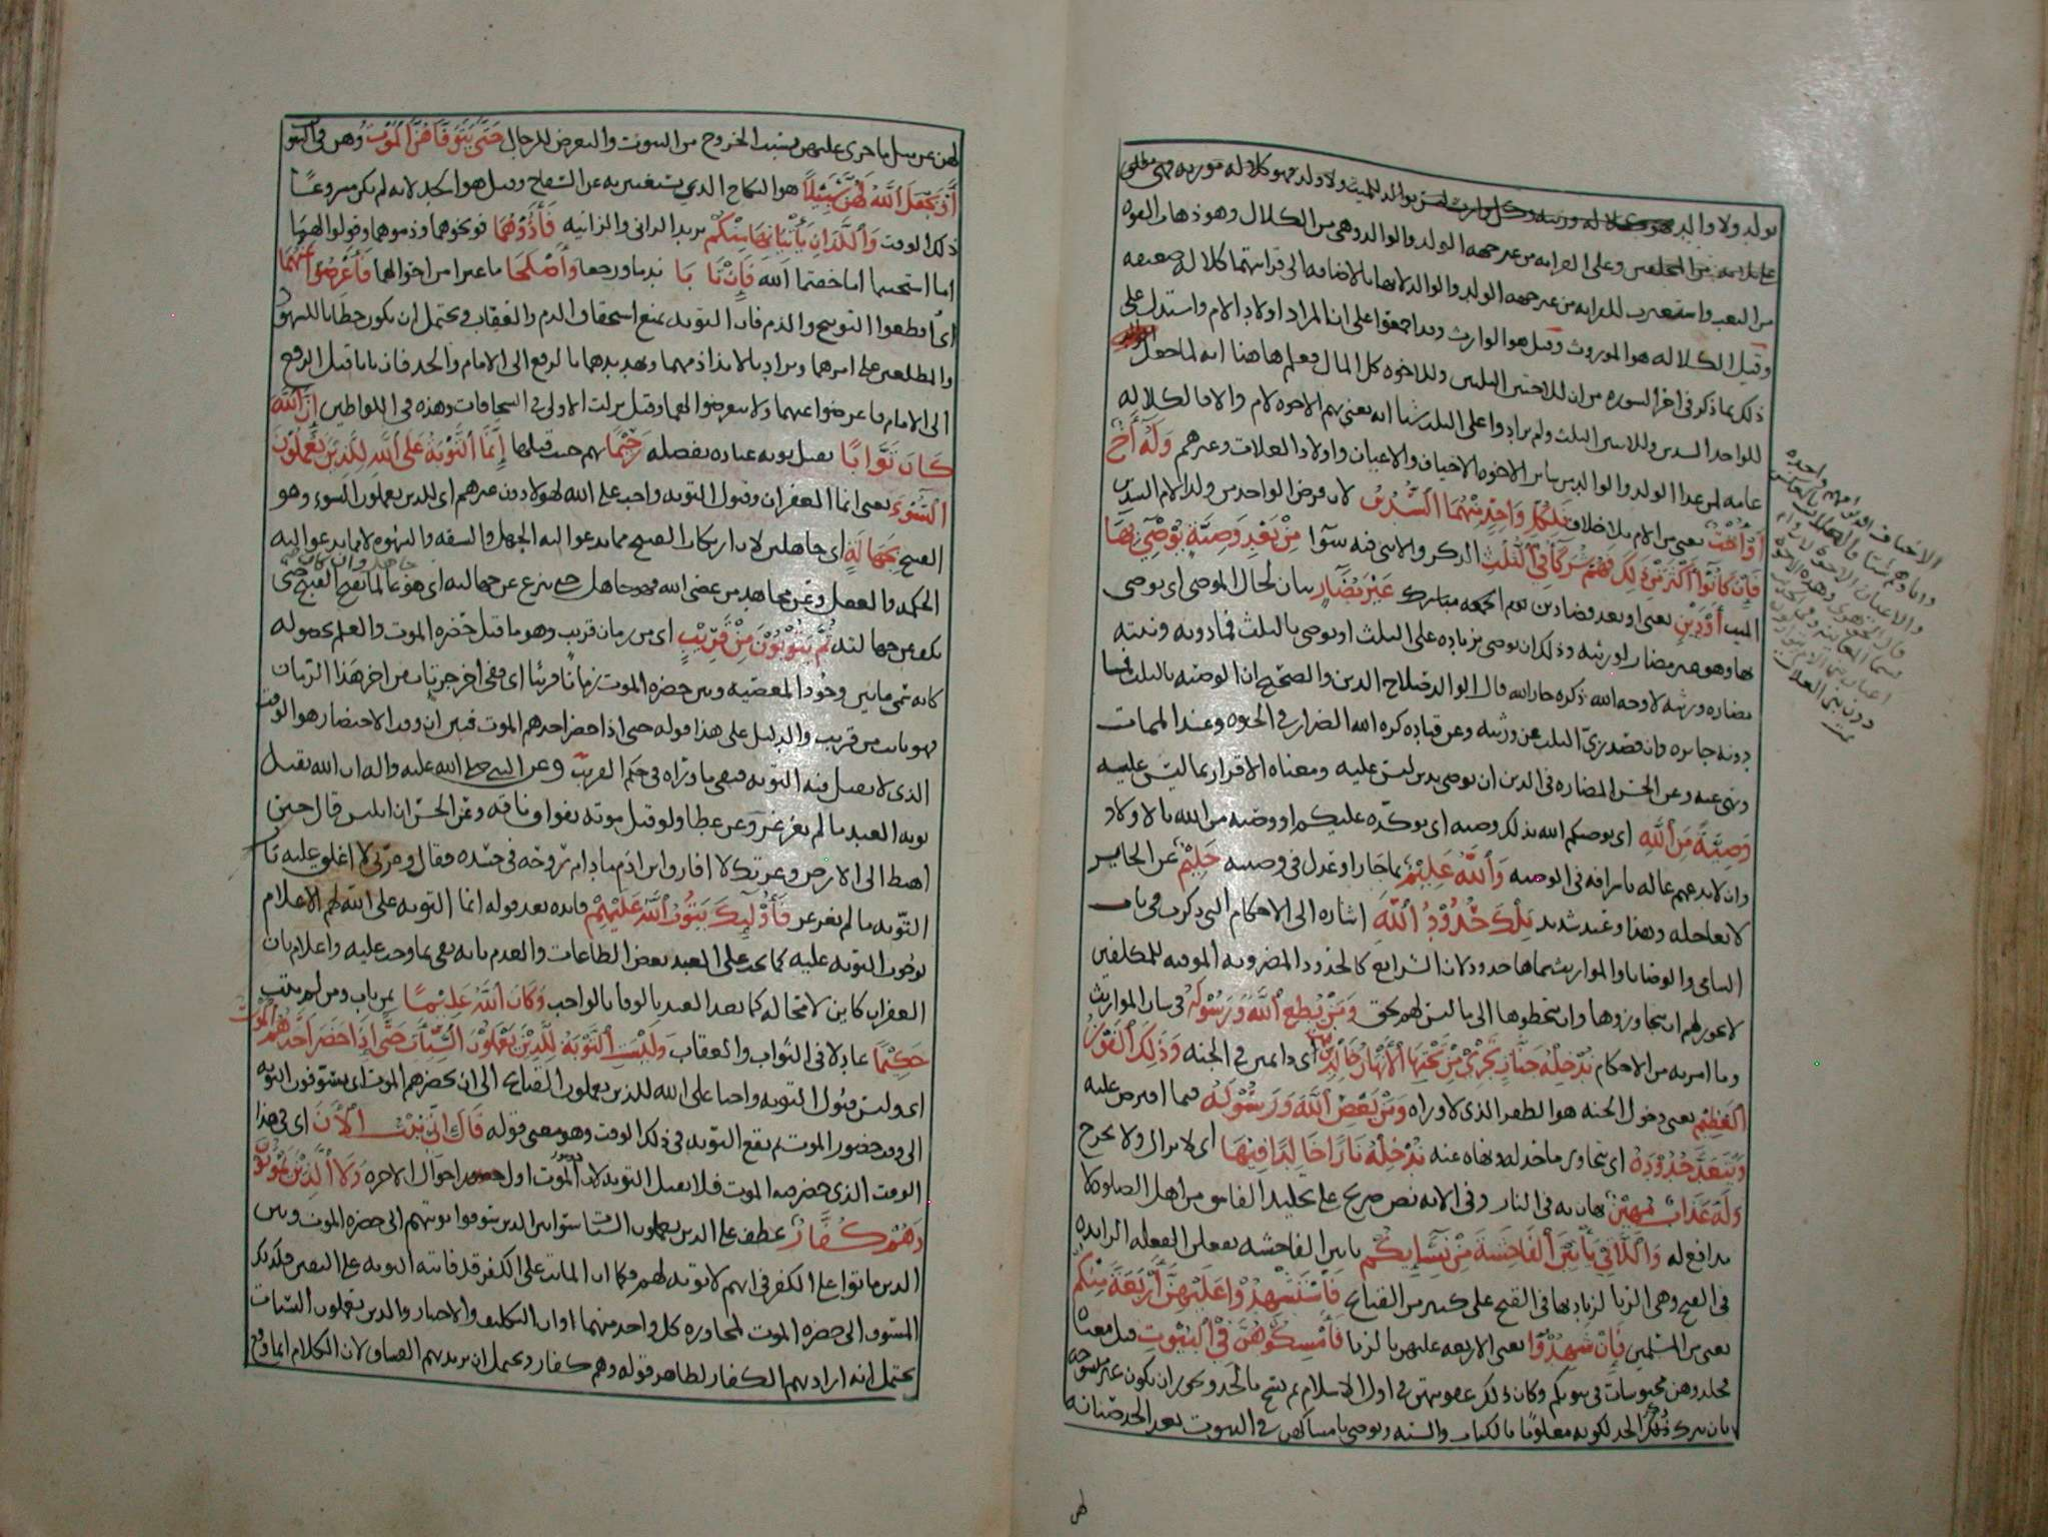 بولد ولا والد
من التعب واستعيرت للقرابه من غير جهه الولد والوالد لانها بالاضافه الى قرابتهما كلاله ضعيفه
وقيل الكلاله هو الموروث وقيل هو الوارث وقد اجمعوا على ان المراد اولاد الام واستدل على
ذلك بما ذكر في اخر السوره من ان للاختين الثلثين وللاخوه كل المال فعلم هاهنا انه لما جعل
للواحد السدس وللاثنين الثلث ولم يزادوا على الثلث شيا انه يعني بهم الاخوه لام والا فالكلاله
عامه لمن عدا الولد والوالد من ساير الاخوه الاخياف والاعيان واولاد العلات وغيرهم وَلَهُ أَخٌ
أَوْ أُخْتٌ يعني من الام بلا خلاف فَلِكُلِّ وَاحِدٍ مِنْهُمَا السُّدُسُ لان فرض الواحد من ولد الام السدس
فَإِنْ كَانُوا أَكْثَرَ مِنْ ذَلِكَ فَهُمْ شُرَكَاءُ فِي الثُّلُثِ الذكر والانثى فيه سوآ مِنْ بَعْدِ وَصِيَّةٍ يُوْصَى بِهَا
أَوْ دَيْنٍ يعني او بعد قضا دين غَيْرَ مُضَارٍّ بيان لحال الموصي اي يوصي
بها وهو غير مضار لورثته وذلك ان يوصي بزياده على الثلث او يوصي بالثلث فما دونه ونيته
مضاره ورثته لا وجه الله ذكره جار الله
دونه جايزه وان قصد زيّ الثلث عن ورثته وعن قتاده كره الله الضرار في الحيوه وعند الممات
ونهى عنه وعن الحسن المضاره في الدين ان يوصي بدين ليس عليه ومعناه الاقرار بما ليس عليه
وَصِيَّةً مِنَ اللَّهِ اي يوصيكم الله بذلك وصيه اي يوكده عليكم او وصيه من الله بالاولاد
وان لا يدعهم عاله باسرافه في الوصيه وَاللَّهُ عَلِيْمٌ بما جار او عدل في وصيته حَلِيْمٌ عن الجاير
لا يعاجله وهذا وعيد شديد تِلْكَ حُدُوْدُ اللَّهِ اشاره الى الاحكام التي ذكرت في باب
اليتامى والوصايا والمواريث سماها حدودا لان الشرايع كالحدود المضروبه الموقته للمكلفين
لا يجوز لهم ان يتجاوزوها وان يتخطوها الى ما ليس لهم بحق وَمَنْ يُطِعِ اللَّهَ وَرَسُوْلَهُ في شان المواريث
وما امر به من الاحكام نُدْخِلْهُ جَنَّاتٍ تَجْرِيْ مِنْ تَحْتِهَا الْأَنْهَارُ خَالِدِيْنَ اي دايمين في الجنه وَذَلِكَ الْفَوْزُ
الْعَظِيْمُ يعني دخول الجنه هو الظفر الذي لا وراه وَمَنْ يَعْصِ اللَّهَ وَرَسُوْلَهُ فيما افترض عليه
وَيَتَعَدَّ حُدُوْدَهُ اي يتجاوز ما حد له ونهاه عنه نُدْخِلْهُ نَارًا خَالِدًا فِيْهَا اي لا يزال ولا يخرج
وَلَهُ عَذَابٌ مُهِيْنٌ يهان به في النار وفي الايه نص صريح على تخليد الفاسق من اهل الصلوه لا
مدافع له وَاللَّاتِي يَأْتِيْنَ الْفَاحِشَةَ مِنْ نِسَائِكُمْ ياتين الفاحشه يفعلن الفعله الزايده
في القبح وهي الزنا لزيادتها في القبح على كثير من القبايح فَاسْتَشْهِدُوْا عَلَيْهِنَّ أَرْبَعَةً مِنْكُمْ
يعني من المسلمين فَإِنْ شَهِدُوْا يعني الاربعه عليهن بالزنا فَأَمْسِكُوْهُنَّ فِي الْبُيُوْتِ قيل معناه
وكان ذلك عقوبتهن في اول الاسلام ثم نسخ بالحد ويجوز ان يكون غير منسوخه
بان يترك ذكر الحد لكونه معلومًا بالكتاب والسنه ويوصي بامساكهن في البيوت بعد الحد صيانه
لهن عن مثل ما جرى عليهن بسبب الخروج من البيوت والتعرض للرجال حَتَّى يَتَوَفَّاهُنَّ الْمَوْتُ
أَوْ يَجْعَلَ اللَّهُ لَهُنَّ سَبِيْلًا هو النكاح الذي يستغنين به عن السفاح وقيل هو الحد لانه لم يكن مشروعًا
ذلك الوقت وَاللَّذَانِ يَأْتِيَانِهَا مِنْكُمْ يريد الزاني والزانيه فَأَذُوْهُمَا فوبخوهما وذموهما وقولوا لهما
اما استحييتما اما خفتما الله فَإِنْ تَابَا ندما ورجعا وَأَصْلَحَا ما غيرا من احوالهما فَأَعْرِضُوْا عَنْهُمَا
اي اقطعوا التوبيخ والذم فان التوبه تمنع استحقاق الذم والعقاب ويحتمل ان يكون خطابا للشهود
والمطلعين على امرهما ويراد بالايذا ذمهما وتهديدهما بالرفع الى الامام والحد فان تابا قبل الرفع
الى الامام فاعرضوا عنهما ولا تتعرضوا لهما وقيل نزلت الاولى في السحاقات وهذه في اللواطين إِنَّ اللَّهَ
كَانَ تَوَّابًا يقبل توبه عباده بفضله رَحِيْمًا بهم حيث قبلها إِنَّمَا التَّوْبَةُ عَلَى اللَّهِ لِلَّذِيْنَ يَعْمَلُوْنَ
السُّوْءَ يعني انما الغفران وقبول التوبه واجب على الله لهولا دون غيرهم اي للذين يعملون السوء وهو
القبيح بِجَهَالَةٍ اي جاهلين لان ارتكاب القبيح مما يدعو اليه الجهل والسفه والشهوه لا مما يدعو اليه
الحكمه والعقل وعن مجاهد من عصى الله فهو جاهل حتى ينزع عن جهالته
ثُمَّ يَتُوْبُوْنَ مِنْ قَرِيْبٍ اي من زمان قريب وهو ما قبل حضره الموت
كانه سمى ما بين وجود المعصيه وبين حضره الموت زمانًا قريبًا اي ففي اخر جزء تاب من اخر هذا الزمان
فهو تايب من قريب والدليل على هذا قوله حتى اذا حضر احدهم الموت فبين ان وقت الاحتضار هو الوقت
الذي لا يقبل فيه التوبه فبقي ما وراه في حكم القريب وعن النبي صلى الله عليه واله ان الله يقبل
توبه العبد ما لم يغرغر وعن عطا ولو قبل موته بفواق ناقه وعن الحسن ان ابليس قال حين
اهبط الى الارض وعزتك لا افارق ابن ادم ما دام روحه في جسده فقال وعزتي لا اغلق عليه باب
التوبه ما لم يغرغر فَأُوْلَئِكَ يَتُوْبُ اللَّهُ عَلَيْهِمْ فايده بعد قوله انما التوبه على الله لهم الاعلام
بوجوب التوبه عليه كما يجب على العبد بعض الطاعات والعده بانه يفي بما وجب عليه واعلام بان
الغفران كاين لا محاله كما يعد العبد بالوفا بالواجب وَكَانَ اللَّهُ عَلِيْمًا بمن تاب ومن لم يتب
حَكِيْمًا عادلا في الثواب والعقاب وَلَيْسَتِ التَّوْبَةُ لِلَّذِيْنَ يَعْمَلُوْنَ السَّيِّئَاتِ حَتَّى إِذَا حَضَرَ أَحَدَهُمُ الْمَوْتُ
اي وليس قبول التوبه واجبا على الله للذين يعملون القبايح الى ان يحضرهم الموت اي يسوفون التوبه
الى وقت حضور الموت ثم تقع التوبه في ذلك الوقت وهو معنى قوله قَالَ إِنِّي تُبْتُ الْأَنَ اي في هذا
الوقت الذي حضر فيه الموت فلا يقبل التوبه لان الموت اول احوال الاخره وَلَا الَّذِيْنَ يَمُوْتُوْنَ
وَهُمْ كُفَّارٌ عطف على الذين يعملون السيئات سوا بين الذين سوفوا توبتهم الى حضره الموت وبين
الذين ماتوا على الكفر في انهم لا توبه لهم فكما ان المايت على الكفر قد فاتته التوبه على اليقين فكذلك
المسوف الى حضره الموت لمجاوزه كل واحد منهما اوان التكليف والاختيار والذين يعملون السيئات
يحتمل انه اراد بهم الكفار لظاهر قوله وهم كفار ويحتمل ان يريد بهم الفساق لان الكلام انما وقع